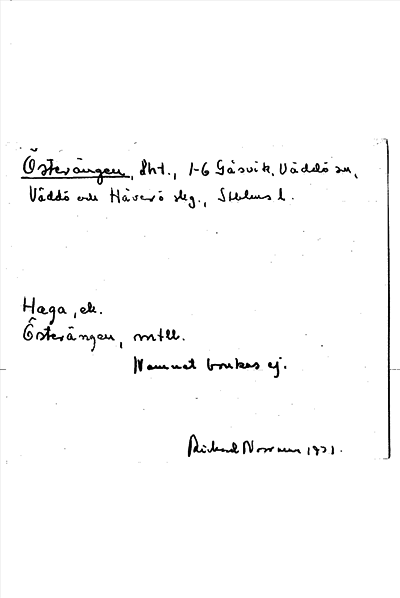 Österängen, lht., 1-6 Gåsvik, Väddö sn,
Väddö och Häverö skg., Sthlms l.
Haga, ek.
Österängen, mtll.
Namnet brukas ej.
Rickard Norman 1931.